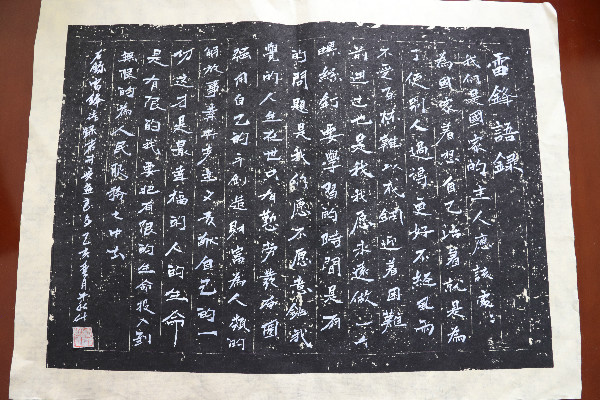 雷鋒語録
我们是國家的主人應該處處
為國家着想自己活着就是為
了使别人過得更好不經風雨
不受百材難以成 迎着困難
前進這也是我 我愿永遠做一个
螺絲釘要學習的時間是有
的問題是我们愿不愿意鉆我
覺的人生在世只有勤劳發奋圖
强用自己的手創造財富為人類的
解放事業共産主义贡献自己的一
切这才是最幸福的人的生命
是有限的我要把有限的生命投入到
無限的為人民服務之中去
录雷鋒 乙亥 月